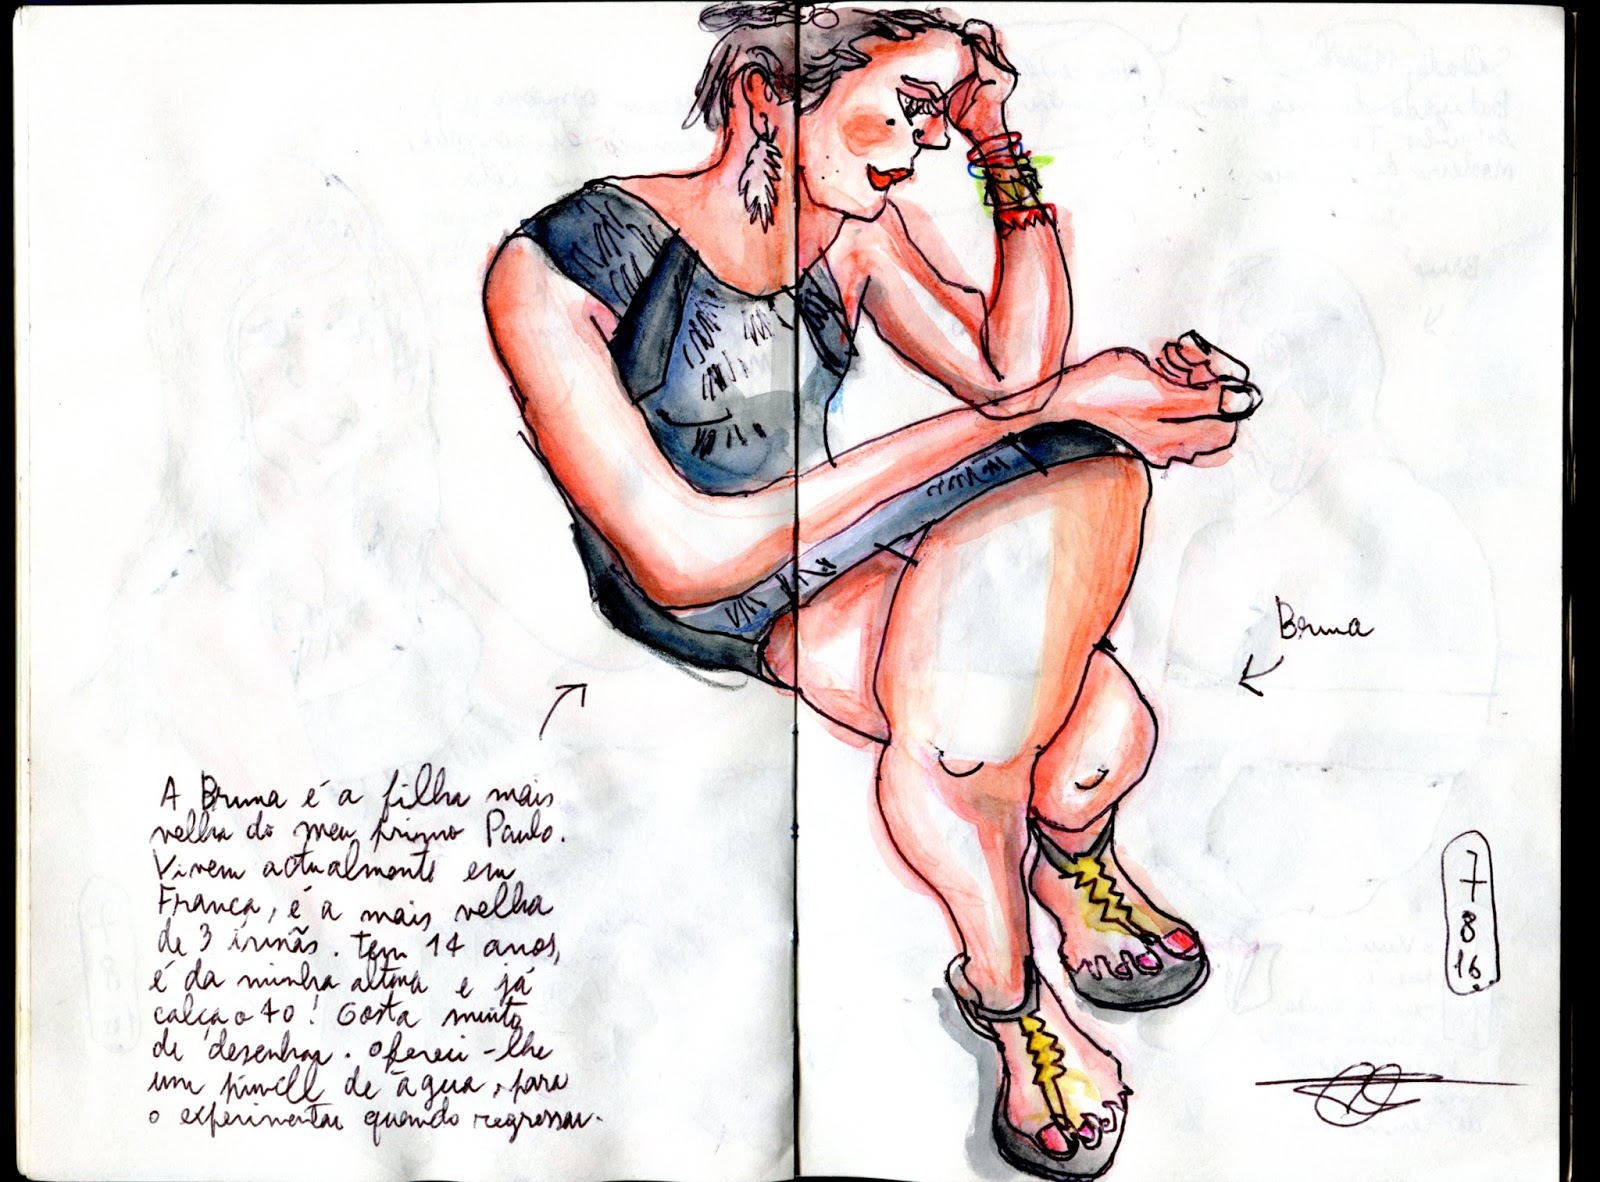 Bruna
A Bruna é a filha mais
velha do meu primo Paulo.
Vivem actualmente em
França, é a mais velha
de 3 irmãs. Tem 14 anos,
é da minha altura e já
calça o 40! Gosta muito
de desenhar. Ofereci-lhe
um pincel de água, para
o experimentar quando regressar.
7
8
16